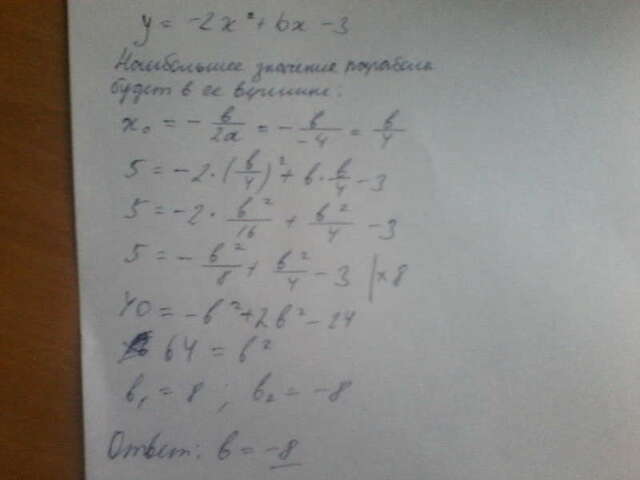 y = -2x² + bx - 3
Наибольшее значение параболы
будет в её вершине:
x₀ = - в/2a = - в/-4 = в/4
5 = -2·(в/4)² + в·в/4 - 3
5 = -2· в²/16 + в²/4 - 3
5 = - в²/8 + в²/4 - 3 |×8
40 = -в² + 2в² - 24
64 = в²
в₁ = 8 ; в₂ = -8
Ответ: в = -8